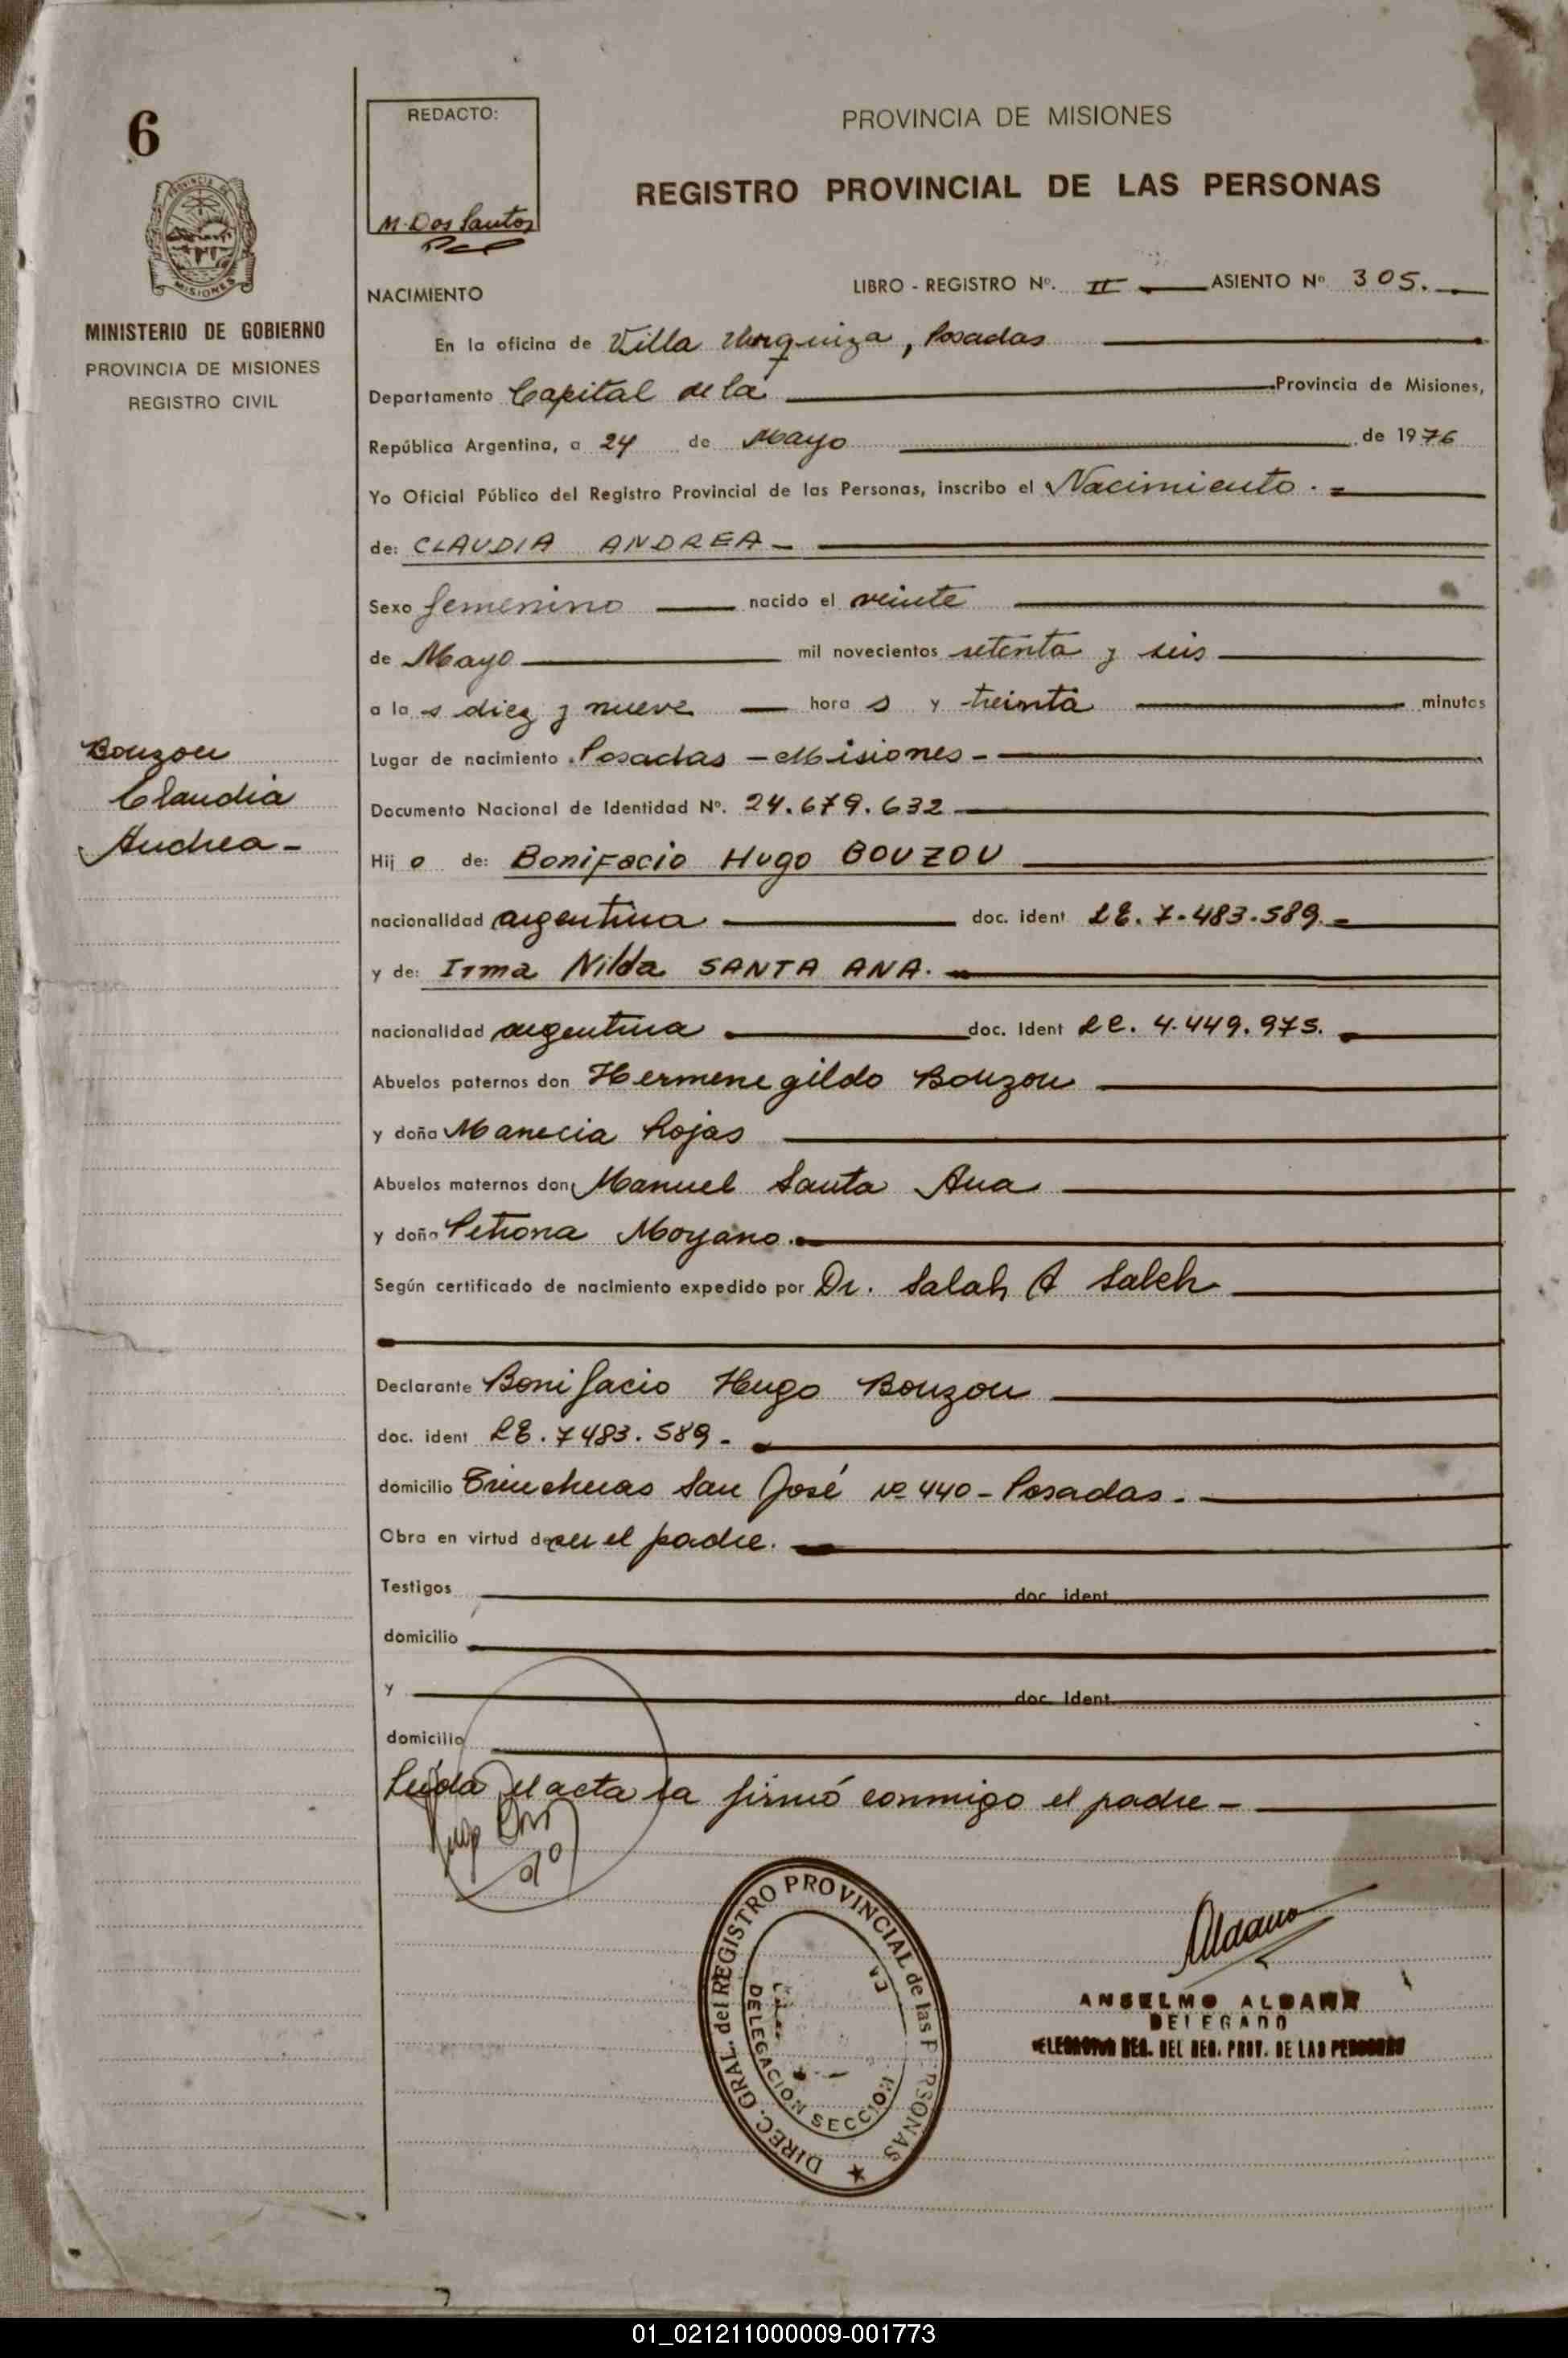 6
PROVINCIA DE
MISIONES
MINISTERIO DE GOBIERNO
PROVINCIA DE MISIONES
REGISTRO CIVIL
Bouzou
Claudia
Andrea-
REDACTO:
M. Dos Santos
PROVINCIA DE MISIONES
REGISTRO PROVINCIAL DE LAS PERSONAS
NACIMIENTO
LIBRO - REGISTRO Nº. II ASIENTO Nº 305.
En la oficina de Villa Urquiza, Posadas
Departamento Capital de la Provincia de Misiones,
República Argentina, a 24 de Mayo de 1976
Yo Oficial Público del Registro Provincial de las Personas, inscribo el Nacimiento.-
de: CLAUDIA ANDREA-
Sexo femenino nacido el veinte
de Mayo mil novecientos setenta y seis
a la s diez y nueve hora s y treinta minutos
Lugar de nacimiento Posadas - Misiones -
Documento Nacional de Identidad Nº. 24.679.632
Hij o de: Bonifacio Hugo BOUZOU
nacionalidad argentina doc. ident LE. 7.483.589.-
y de: Irma Nilda SANTA ANA.
nacionalidad argentina doc. Ident LC. 4.449.975.
Abuelos paternos don Hermenegildo Bouzou
y doña Manecia Rojas
Abuelos maternos don Manuel Santa Ana
y doña Petrona Moyano.
Según certificado de nacimiento expedido por Dr. Salah A Saleh
Declarante Bonifacio Hugo Bouzou
doc. ident LE. 7483.589.-
domicilio Trincheras San José Nº 440 - Posadas.
Obra en virtud de ser el padre.
Testigos doc. ident
domicilio
y doc. Ident
domicilio
Leída el acta la firmó conmigo el padre -
DIREC. GRAL. del REGISTRO PROVINCIAL de las PERSONAS
DELEGACION SECCION
Aldana
ANSELMO ALDANA
DELEGADO
REG. DEL REG. PROV. DE LAS PERSONAS
01_021211000009-001773